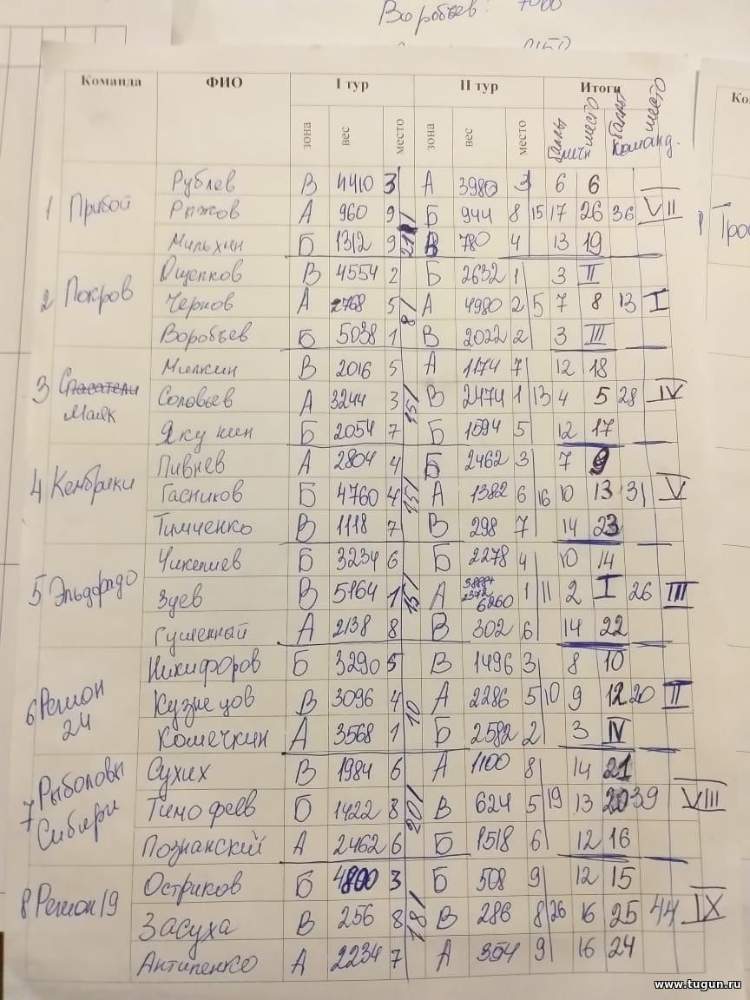 Воробьев: 7060
Команда ФИО I тур II тур Итоги
зона вес место зона вес место баллы личн место баллы команд. место
Рублев В 4410 3 А 3980 3 6 6
1 Прибой Рыжов А 960 9 21 Б 944 8 15 17 26 36 VII
Мильхин Б 1312 9 В 780 4 13 19
Ощепков В 4554 2 Б 2632 1 3 II
2 Покров Чернов А 2768 5 8 А 4980 2 5 7 8 13 I
Воробьев Б 5038 1 В 2022 2 3 III
Милкин В 2016 5 А 1174 7 12 18
3 Спасатели Соловьев А 3244 3 15 В 2474 1 13 4 5 28 IV
Маяк
Якунин Б 2054 7 Б 1594 5 12 17
Пивнев А 2804 4 Б 2462 3 7 9
4 Кембрики Гасников Б 4760 4 15 А 1382 6 16 10 13 31 V
Тимченко В 1118 7 В 298 7 14 23
Чикешев Б 3234 6 Б 2278 4 10 14
5 Эльдорадо Зуев В 5164 1 15 А 6260 1 11 2 I 26 III
Гушенный А 2138 8 В 302 6 14 22
Никифоров Б 3290 5 В 1496 3 8 10
6 Регион 24 Кузнецов В 3096 4 10 А 2286 5 10 9 12 20 II
Комечкин А 3568 1 Б 2582 2 3 IV
Сухих В 1984 6 А 1100 8 14 21
7 Рыболовы Сибири Тимофеев Б 1422 8 20 В 624 5 19 13 20 39 VIII
Познанский А 2462 6 Б 1518 6 12 16
Остриков Б 4800 3 Б 508 9 12 15
8 Регион 19 Засуха В 256 8 18 В 286 8 26 16 25 44 IX
Антипенко А 2234 7 А 354 9 16 24
www.tugun.ru